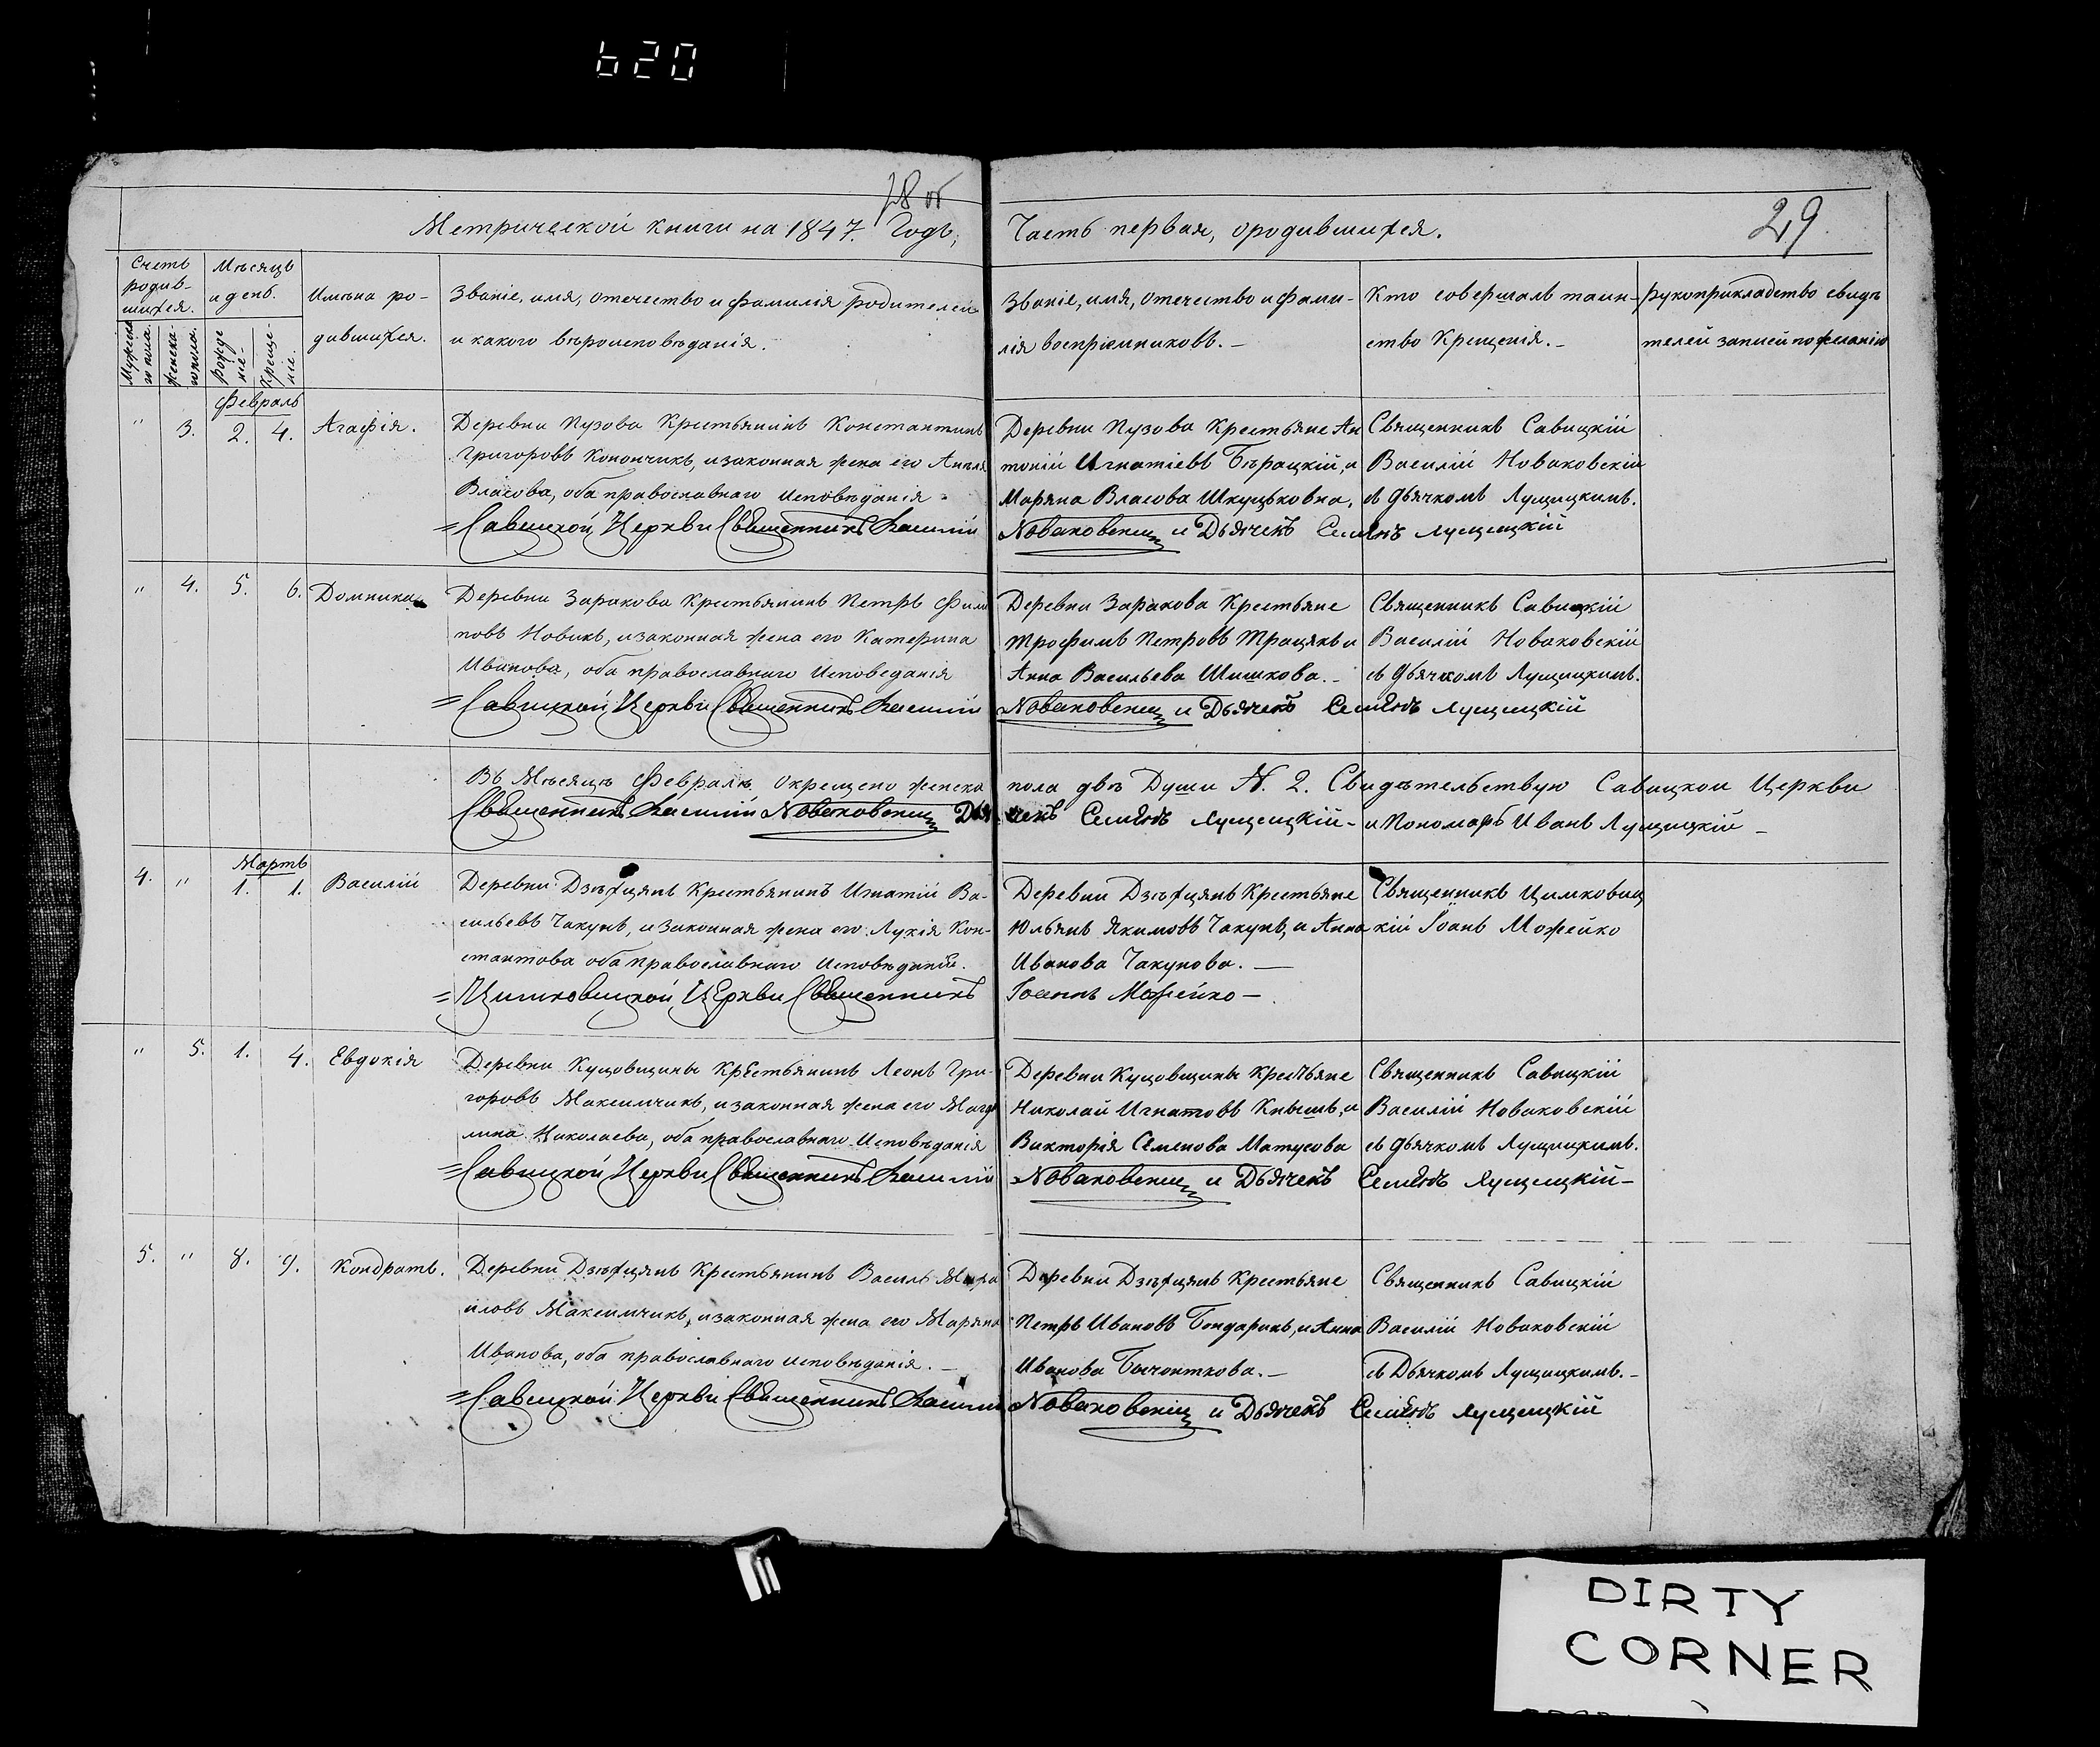 620
28 об
29
Метрической книги на 1847. Годъ, Часть первая, о родившихся.
Счетъ родив-шихся.
Мѣсяцъ и день.
Имѣна ро-
дившихся.
Званіе, имя, отечество и фамилія родителей
и какого вѣроисповѣданія.
Званіе, имя, отечество и фами-
лія воспріемниковъ. -
Кто совершалъ таин-
ство Крещенія. -
Рукоприкладство свидѣ
телей записей по желанію
Мужеска го пола.
Женска го пола.
Рожде ніе-
Креще-ніе.
Февраль
" 3. 2. 4. Агафія.
Деревни Пузова Крестьянинъ Константинъ
Григоровъ Конончикъ, и законная жена его
Власова, оба православнаго исповѣданія -
=Савицкой Церкви Священникъ Василій
Деревни Пузова Крестьяне Ан
тоній Игнатіевъ Бѣрацкій, и
Маряна Власова Шкуцьковна.
Новаковскій и Дьячекъ Семіонъ Лущицкій
Священникъ Савицкій
Василій Новаковскій
съ дьячкомъ Лущицкимъ.
" 4. 5. 6. Домникія
Деревни Заракова Крестьянинъ Петръ Фили
повъ Новикъ, и законная жена его Катерина
Иванова, оба православнаго Исповеданія
=Савицкой Церкви Священникъ Василій
Деревни Заракова Крестьяне
Трофимъ Петровъ Трацякъ и
Анна Васильева Шишкова. -
Новаковскій и Дьячекъ Семіонъ Лущицкій
Священникъ Савицкій
Василій Новаковскій
съ дьячкомъ Лущицкимъ.
Въ Мѣсяцѣ Февралѣ, Окрещено женска пола двѣ Души N. 2. Свидѣтельствую Савицкой Церкви
Священникъ Василій Новаковскій Дьячекъ Семіонъ Лущицкій - и Пономарь Иванъ Лущицкій -
Мартъ
4. " 1. 1. Василій
Деревни Дзѣхцянъ Крестьянинъ Игнатій Ва-
сильевъ Чакунъ, и законная жена его Лукія Кон-
стантова оба православнаго исповѣданія.
=Цимковицкой Церкви Священникъ
Деревни Дзѣхцянъ Крестьяне
Юльянъ Якимовъ Чакунъ, и Анна
Иванова Чакунова. -
Іоаннъ Можейко -
Священникъ Цимковиц
кій Іоанъ Можейко
" 5. 1. 4. Евдокія
Деревни Куцовщины Крестьянинъ Леонъ Гри-
горовъ Максимчикъ, и законная жена его Магда
лина Николаева, оба православнаго Исповѣданія
=Савицкой Церкви Священникъ Василій
Деревни Куцовщины Крестьяне
Николай Игнатовъ Кнышъ, и
Викторія Семенова Матусова
Новаковскій и Дьячекъ Семіонъ Лущицкій -
Священникъ Савицкій
Василій Новаковскій
съ дьячкомъ Лущицкимъ.
5. " 8. 9. Кондратъ.
Деревни Дзѣхцянъ Крестьянинъ Василь
иловъ Максимчикъ, и законная жена его Маряна
Иванова, оба православнаго исповѣданія. -
=Савицкой Церкви Священникъ Василій
Деревни Дзѣхцянъ Крестьяне
Петръ Ивановъ Бондарикъ, и Анна
Иванова Бычонткова. -
Новаковскій и Дьячекъ Семіонъ Лущицкій
Священникъ Савицкій
Василій Новаковскій
съ Дьячкомъ Лущицкимъ. -
DIRTY
CORNER